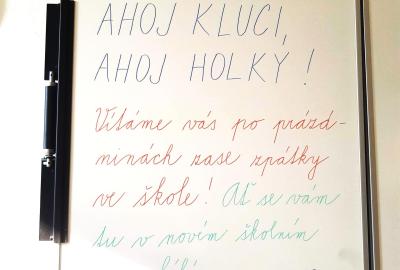 AHOJ KLUCI,
AHOJ HOLKY!
Vítáme vás po prázd-
ninách zase zpátky
ve škole! Ať se vám
tu v novém školním